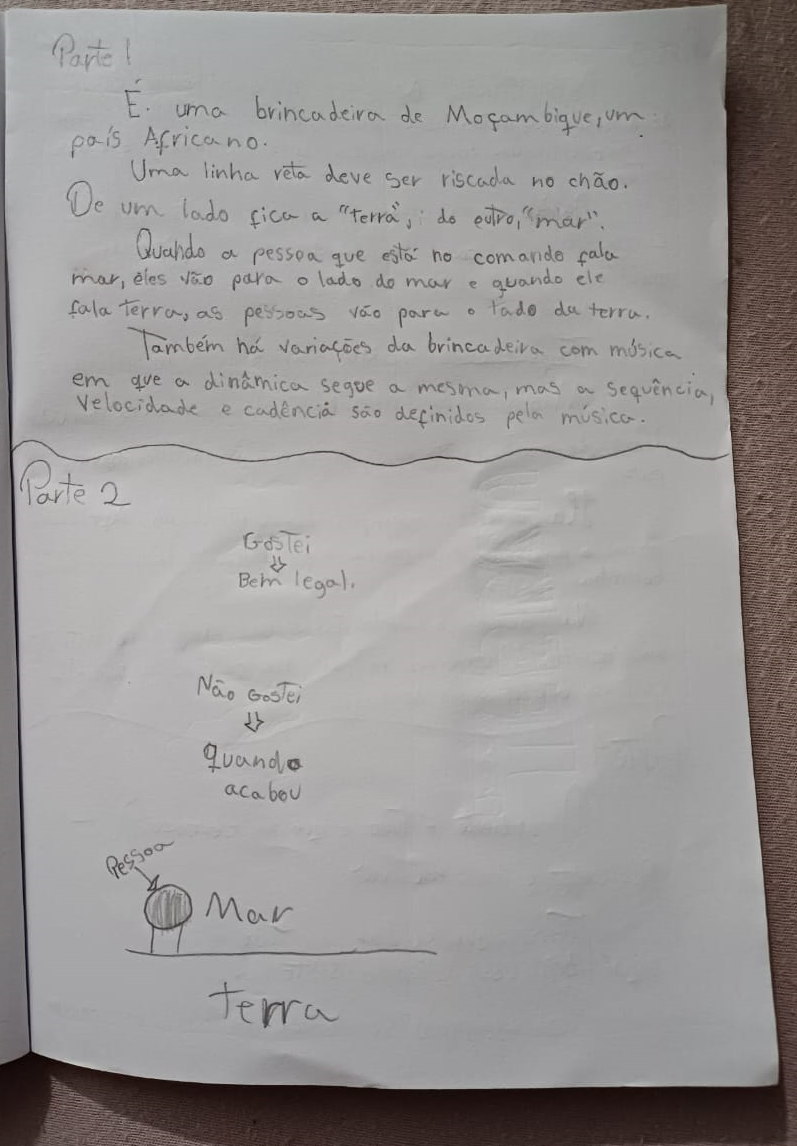 Parte 1
É uma brincadeira de Moçambique, um
país Africano.
Uma linha reta deve ser riscada no chão.
De um lado fica a "terra", do outro, "mar".
Quando a pessoa que está no comando fala
mar, eles vão para o lado do mar e quando ele
fala terra, as pessoas vão para o lado da terra.
Também há variações da brincadeira com música
em que a dinâmica segue a mesma, mas a sequência,
velocidade e cadência são definidos pela música.
Parte 2
Gostei
⇩
Bem legal.
Não Gostei
⇩
Quando
acabou
Pessoa
Mar
terra